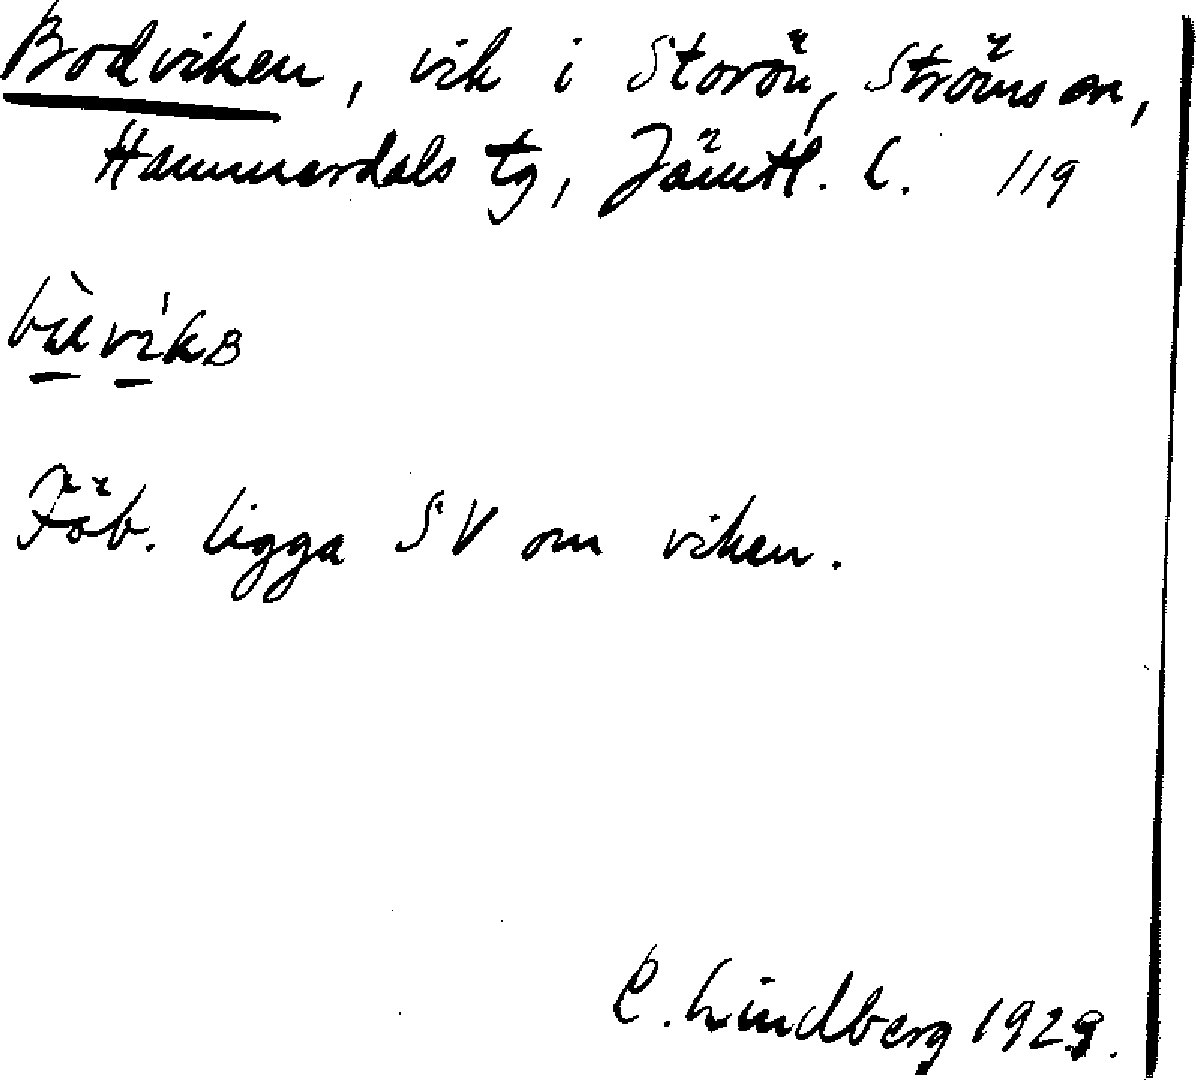 Bodviken, vik i Storön, Ströms sn,
Hammerdals tg, Jämtl. l. 119
Fäb. ligga SV om viken.
C. Lindberg 1929.